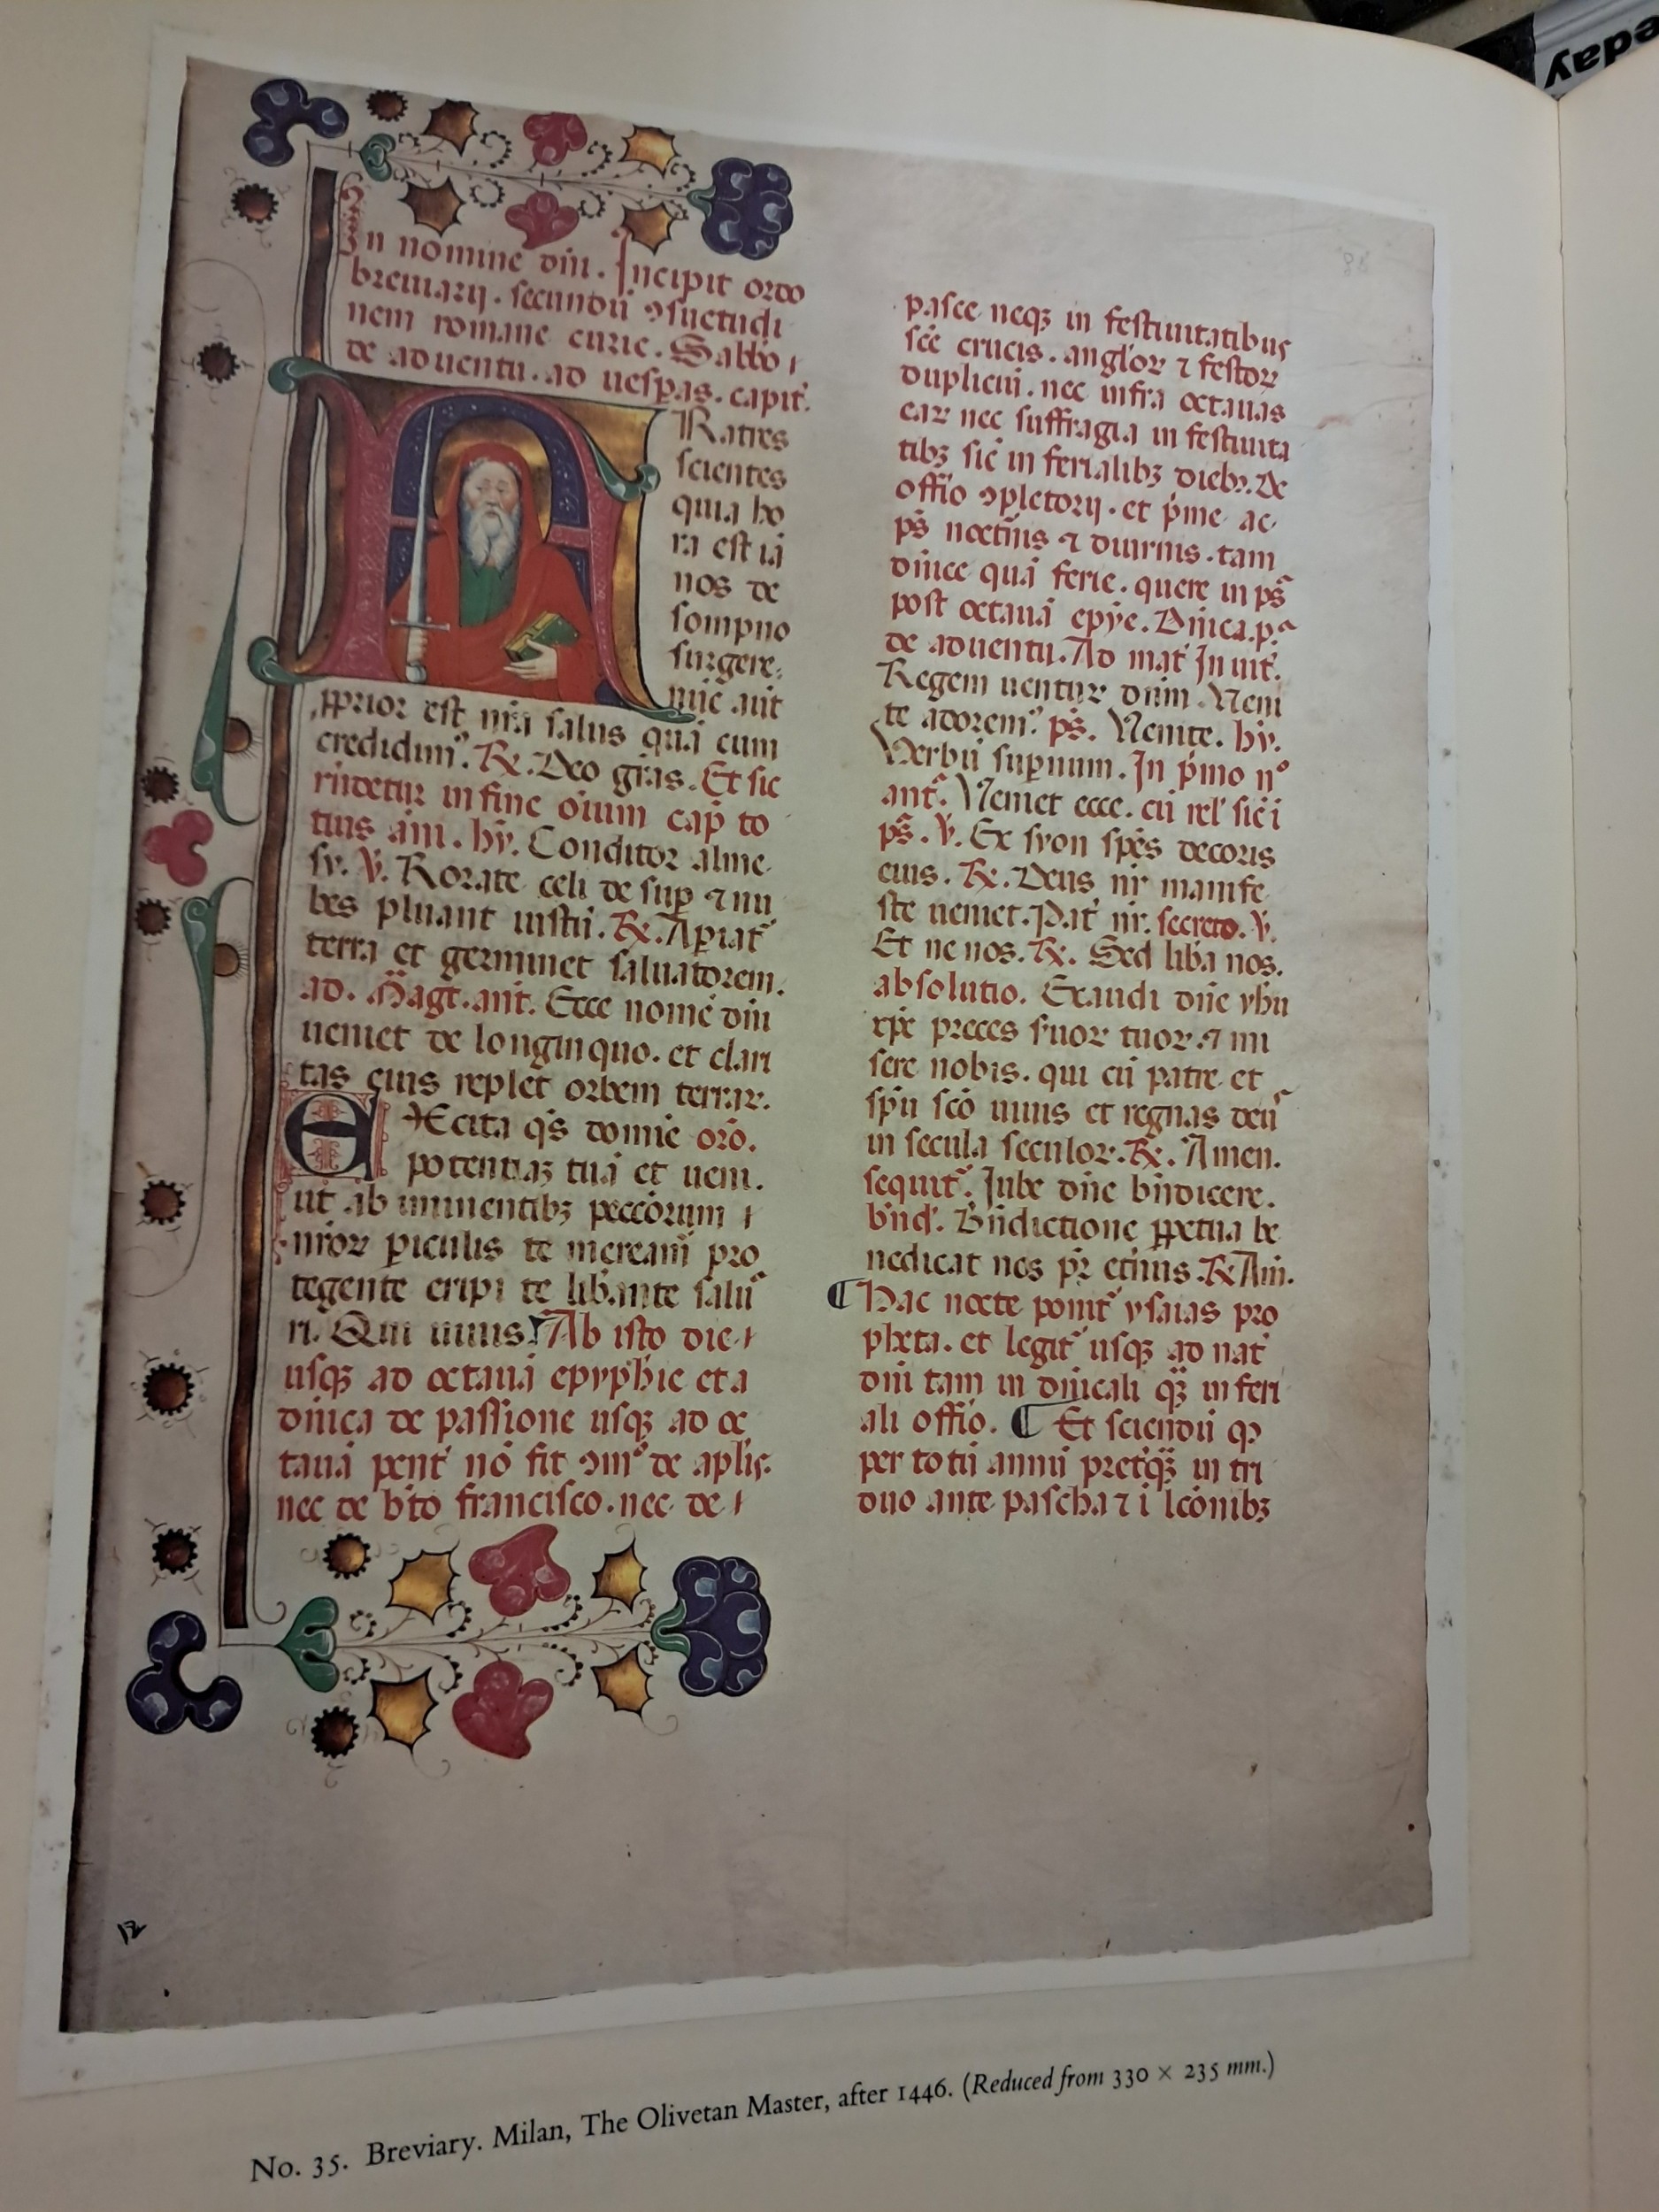 In nomine dñi. Incipit ordo
breuiarij. secundū ꝯsuetudi
nem romane curie. Sabbo
de aduentu. ad uesp̱as. capit̃.
Ratres
scientes
quia ho
ra est iā
nos de
sompno
surgere.
nūc aut̃
ꝓprior est nr̃a salus quā cum
credidim᷒. ℟. Deo gr̃as. Et sic
rñdetur in fine oĩum cap̃ to
tius ãni. hỹ. Conditor alme
sy. ℣. Rorate celi desup ⁊ nu
bes pluant iustū. ℟. Aꝑiat̃
terra et germinet saluatorem.
ad. Magt. ant. Ecce nomē dñi
ueniet de longinquo. et clari
tas eius replet orbem terrar̃.
EXcita q̃s domĩe orō.
potentiaꝫ tuā et ueni.
ut ab iminentibꝫ peccōrum
nr̃oꝝ ꝑiculis te meream̃ pro
tegente eripi te libante salu
ri. Qui uiuis. Ab isto die
usqꝫ ad octauā epyph̃ie et a
dñica de passione usqꝫ ad oc
tauā pent̃ nō fit ꝯm̃o de apl̃is.
nec de bt̃o francisco. nec de
pasce neqꝫ in festiuitatibus
sc̃e crucis. angl̃oꝝ ⁊ festoꝝ
duplicũ. nec infra octauas
eaꝝ nec suffragia in festiuita
tibꝫ sic̃ in ferialibꝫ diebꝫ. De
offĩo ꝯpletorij. et p̃me ac
ps̃ noctĩis ⁊ diurnis. tam
dñice quā ferie. quere in ps̃
post octauā epỹe. Dñica. p.ᵃ
de aduentu. Ad mat̃ Inuit̃.
Regem uentur̃ dñm. Veni
te adorem᷒. ps̃. Venite. hỹ.
Verbū suꝑnum. In p̃mo n°
ant̃. Veniet ecce. cū rel̃ sic̃ i
ps̃. ℣. Ex syon spẽs decoris
eius. ℟. Deus nr̃ manife
ste ueniet. Pat̃ nr̃. secreto. ℣.
Et ne nos. ℟. Sed liba nos.
absolutio. Exaudi dñe yhu
xp̃e preces s̃uoꝝ tuoꝝ. ⁊ mi
sere nobis. qui cū patre et
sp̃u scõ uiuis et regnas deus
in secula seculoꝝ. ℟. Amen.
sequit̃. Iube dñe bñdicere.
bñd̃. Bñdictione ꝑpetua be
nedicat nos pr̃ et̃nus. ℟ Am̃.
¶ Hac nocte ponit̃ ysaias pro
pheta. et legit̃ usqꝫ ad nat̃
dñi tam in dñicali qꝫ̃ in feri
ali offĩo. ¶ Et sciendū ꝙ
per totū annū pret̃qꝫ̃ in tri
duo ante pascha ⁊ i lcõnibꝫ
12
No. 35. Breviary. Milan, The Olivetan Master, after 1446. (Reduced from 330 × 235 mm.)